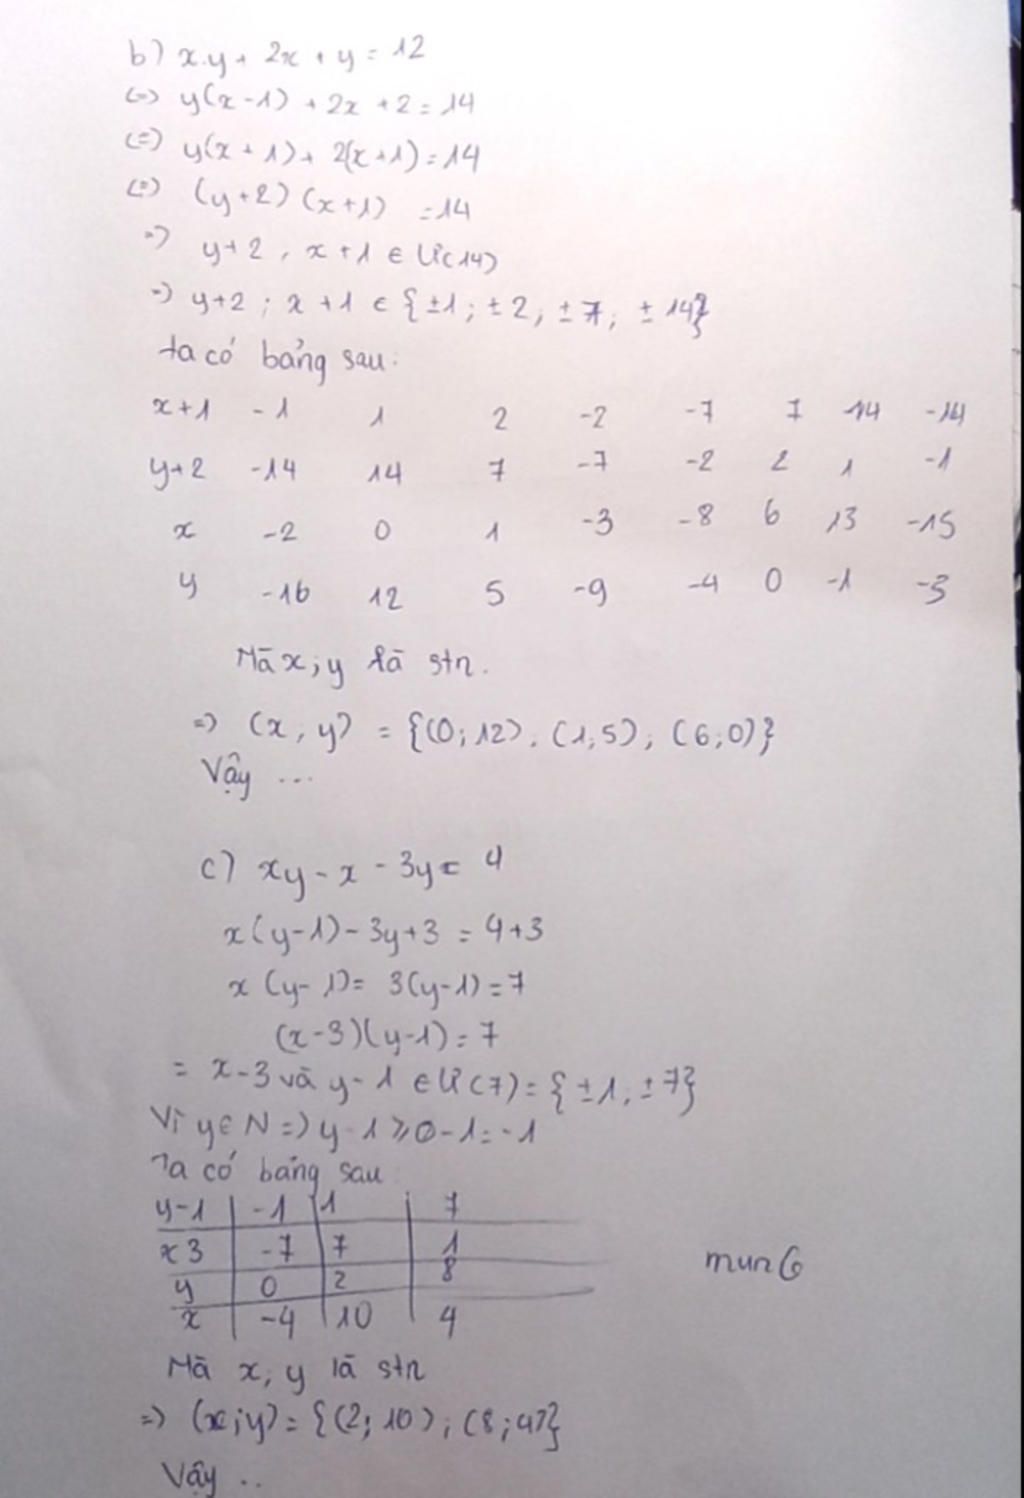 b) x.y + 2x + y = 12
(=) y(x-1) + 2x + 2 = 14
(=) y(x+1) + 2(x+1) = 14
(=) (y+2) (x+1) = 14
=) y+2, x+1 ∈ Ư(14)
=) y+2 ; x+1 ∈ {±1; ±2; ±7; ±14}
ta có bảng sau:
x+1 -1 1 2 -2 -7 7 14 -14
y+2 -14 14 7 -7 -2 2 1 -1
x -2 0 1 -3 -8 6 13 -15
y -16 12 5 -9 -4 0 -1 -3
Mà x; y là stn.
=) (x, y) = {(0; 12), (1; 5); (6; 0)}
Vậy ...
c) xy - x - 3y = 4
x(y-1) - 3y + 3 = 4+3
x (y-1) = 3(y-1) = 7
(x-3)(y-1) = 7
= x-3 và y-1 ∈ Ư(7) = {±1, ±7}
Vì y ∈ N =) y-1 ≥ 0-1 = -1
Ta có bảng sau
y-1 -1 1 7
x 3 -7 7 1
y 0 2 8
x -4 10 4
mun6
Mà x, y là stn
=) (x; y) = {(2; 10); (8; 4)}
Vậy ..